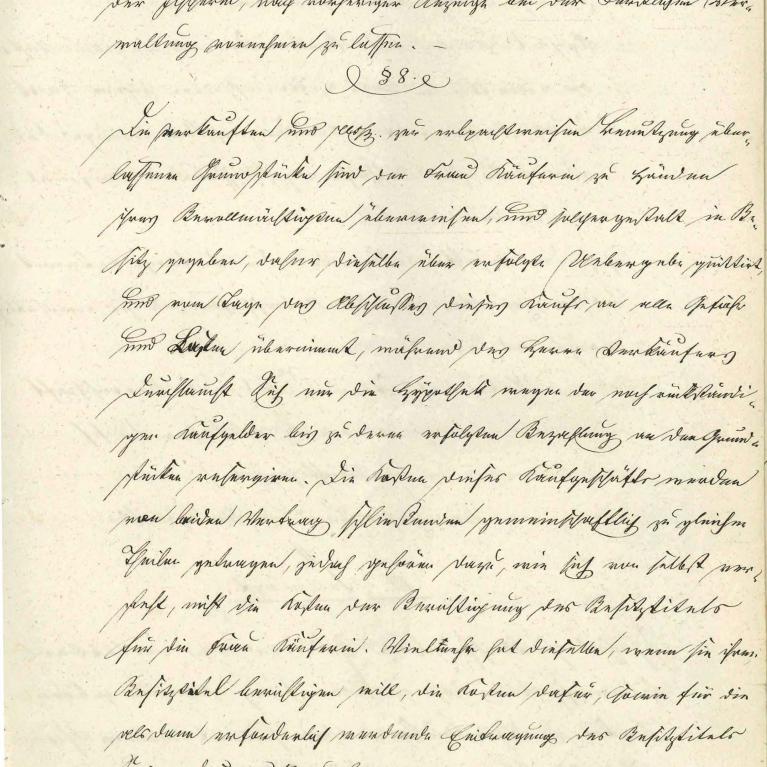 der Fischerei, nach vorheriger Anzeige bei der Fürstlichen Ver-
waltung vornehmen zu lassen. –
§ 8.
Die verkauften und resp. zur erbpachtweisen Benutzung über-
lassenen Grundstücke sind der Frau Käuferin zu Händen
ihres Bevollmächtigten überwiesen, und solchergestalt in Be-
sitz gegeben, daher dieselbe über erfolgte Uebergabe quittirt,
und vom Tage des Abschlusses dieses Kaufs an alle Gefahr
und Lasten übernimmt, während des Herrn Verkäufers
Durchlaucht Sich nur die Hypothek wegen der noch rückständi-
gen Kaufgelder bis zu deren erfolgten Bezahlung an den Grund-
stücken reserviren. Die Kosten dieses Kaufgeschäfts werden
von beiden Vertrag schließenden gemeinschaftlich zu gleichen
Theilen getragen, jedoch gehören dazu, wie sich von selbst ver-
steht, nicht die Kosten der Berichtigung des Besitztitels
für die Frau Käuferin. Vielmehr hat dieselbe, wenn sie ihren
Besitztitel berichtigen will, die Kosten dafür, sowie für die
alsdann erforderlich werdende Eintragung des Besitztitels